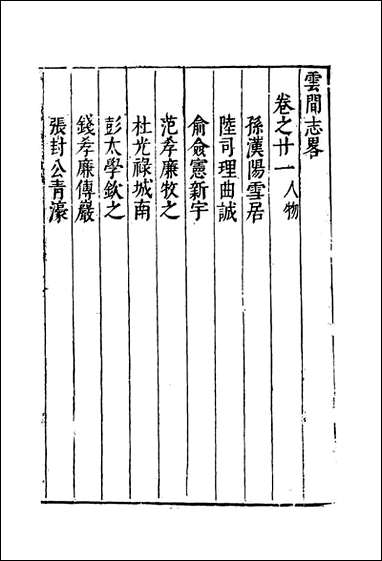 雲間志畧
卷之廿一人物
孫漢陽雪居
陸司理曲誠
俞僉憲新宇
范孝廉牧之
杜光祿城南
彭太學欽之
錢孝廉傳巖
張封公青濠